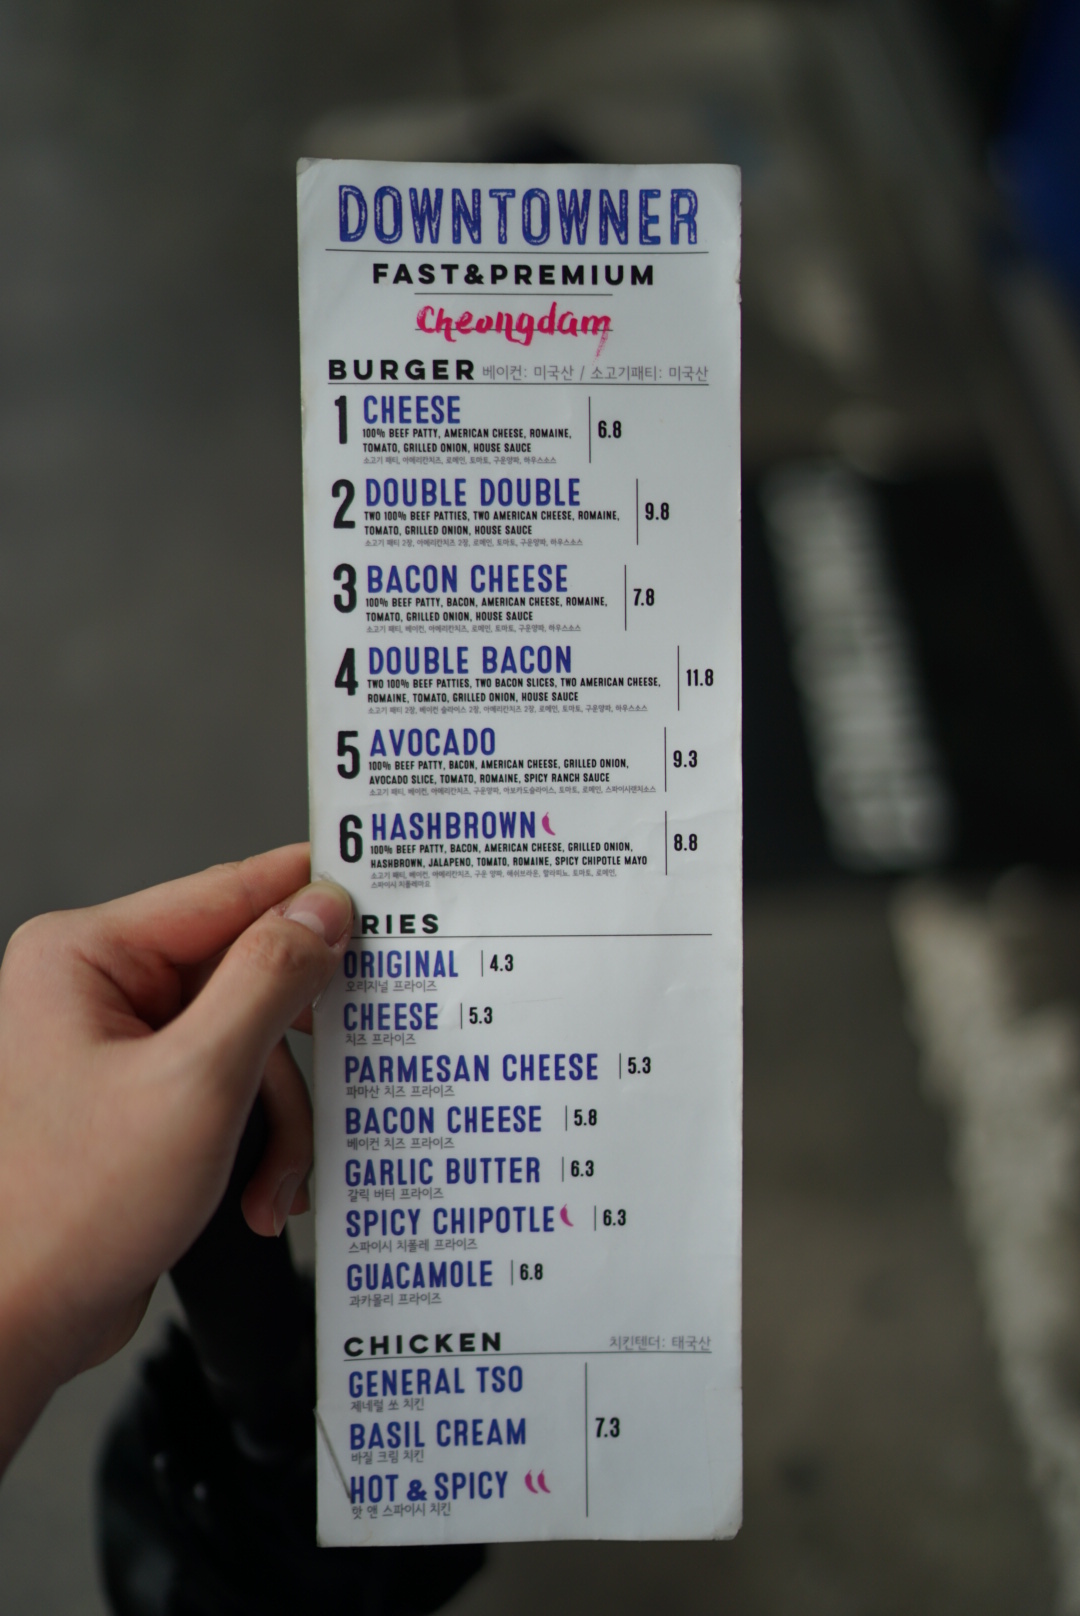 DOWNTOWNER
FAST&PREMIUM
Cheongdam
BURGER 베이컨: 미국산 / 소고기패티: 미국산
1 CHEESE 6.8
100% BEEF PATTY, AMERICAN CHEESE, ROMAINE,
TOMATO, GRILLED ONION, HOUSE SAUCE
소고기 패티, 아메리칸치즈, 로메인, 토마토, 구운양파, 하우스소스
2 DOUBLE DOUBLE 9.8
TWO 100% BEEF PATTIES, TWO AMERICAN CHEESE, ROMAINE,
TOMATO, GRILLED ONION, HOUSE SAUCE
소고기 패티 2장, 아메리칸치즈 2장, 로메인, 토마토, 구운양파, 하우스소스
3 BACON CHEESE 7.8
100% BEEF PATTY, BACON, AMERICAN CHEESE, ROMAINE,
TOMATO, GRILLED ONION, HOUSE SAUCE
소고기 패티, 베이컨, 아메리칸치즈, 로메인, 토마토, 구운양파, 하우스소스
4 DOUBLE BACON 11.8
TWO 100% BEEF PATTIES, TWO BACON SLICES, TWO AMERICAN CHEESE,
ROMAINE, TOMATO, GRILLED ONION, HOUSE SAUCE
소고기 패티 2장, 베이컨 슬라이스 2장, 아메리칸치즈 2장, 로메인, 토마토, 구운양파, 하우스소스
5 AVOCADO 9.3
100% BEEF PATTY, BACON, AMERICAN CHEESE, GRILLED ONION,
AVOCADO SLICE, TOMATO, ROMAINE, SPICY RANCH SAUCE
소고기 패티, 베이컨, 아메리칸치즈, 구운양파, 아보카도슬라이스, 토마토, 로메인, 스파이시랜치소스
6 HASHBROWN 8.8
100% BEEF PATTY, BACON, AMERICAN CHEESE, GRILLED ONION,
HASHBROWN, JALAPENO, TOMATO, ROMAINE, SPICY CHIPOTLE MAYO
소고기 패티, 베이컨, 아메리칸치즈, 구운 양파, 해쉬브라운, 할라피노, 토마토, 로메인,
스파이시 치폴레마요
RIES
ORIGINAL 4.3
오리지널 프라이즈
CHEESE 5.3
치즈 프라이즈
PARMESAN CHEESE 5.3
파마산 치즈 프라이즈
BACON CHEESE 5.8
베이컨 치즈 프라이즈
GARLIC BUTTER 6.3
갈릭 버터 프라이즈
SPICY CHIPOTLE 6.3
스파이시 치폴레 프라이즈
GUACAMOLE 6.8
과카몰리 프라이즈
CHICKEN 치킨텐더: 태국산
GENERAL TSO
제네럴 쏘 치킨
BASIL CREAM 7.3
바질 크림 치킨
HOT & SPICY
핫 앤 스파이시 치킨